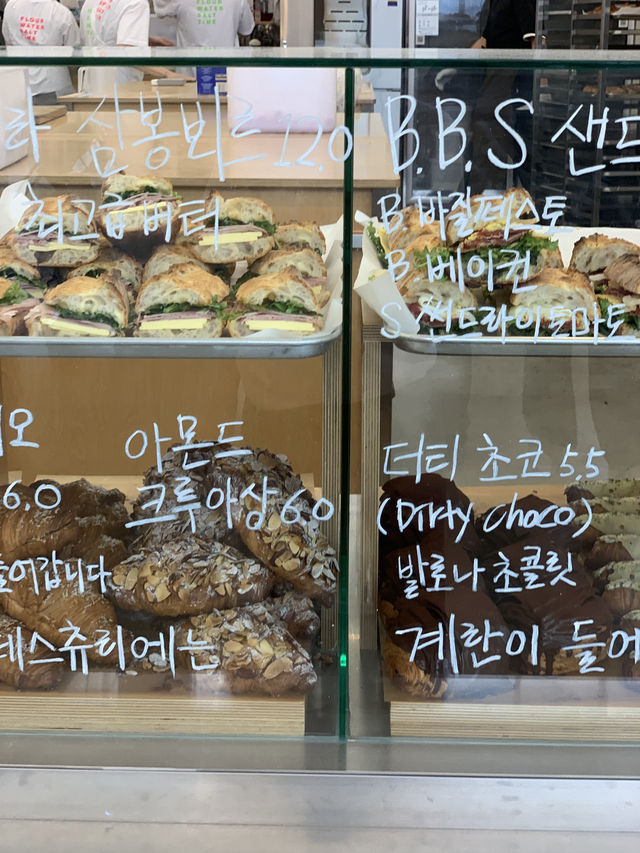 FLOUR
WATER
SALT
TIME
FLOUR
WATER
SALT
TIME
라 삼봉비르 12.0
최고급버터
B.B.S 샌드
B 바질페스토
B 베이컨
S 썬드라이토마토
오
6.0
아몬드
크루아상 6.0
들어갑니다
더티 초코 5.5
(Dirty choco)
발로나 초콜릿
데스츄리에는
계란이 들어